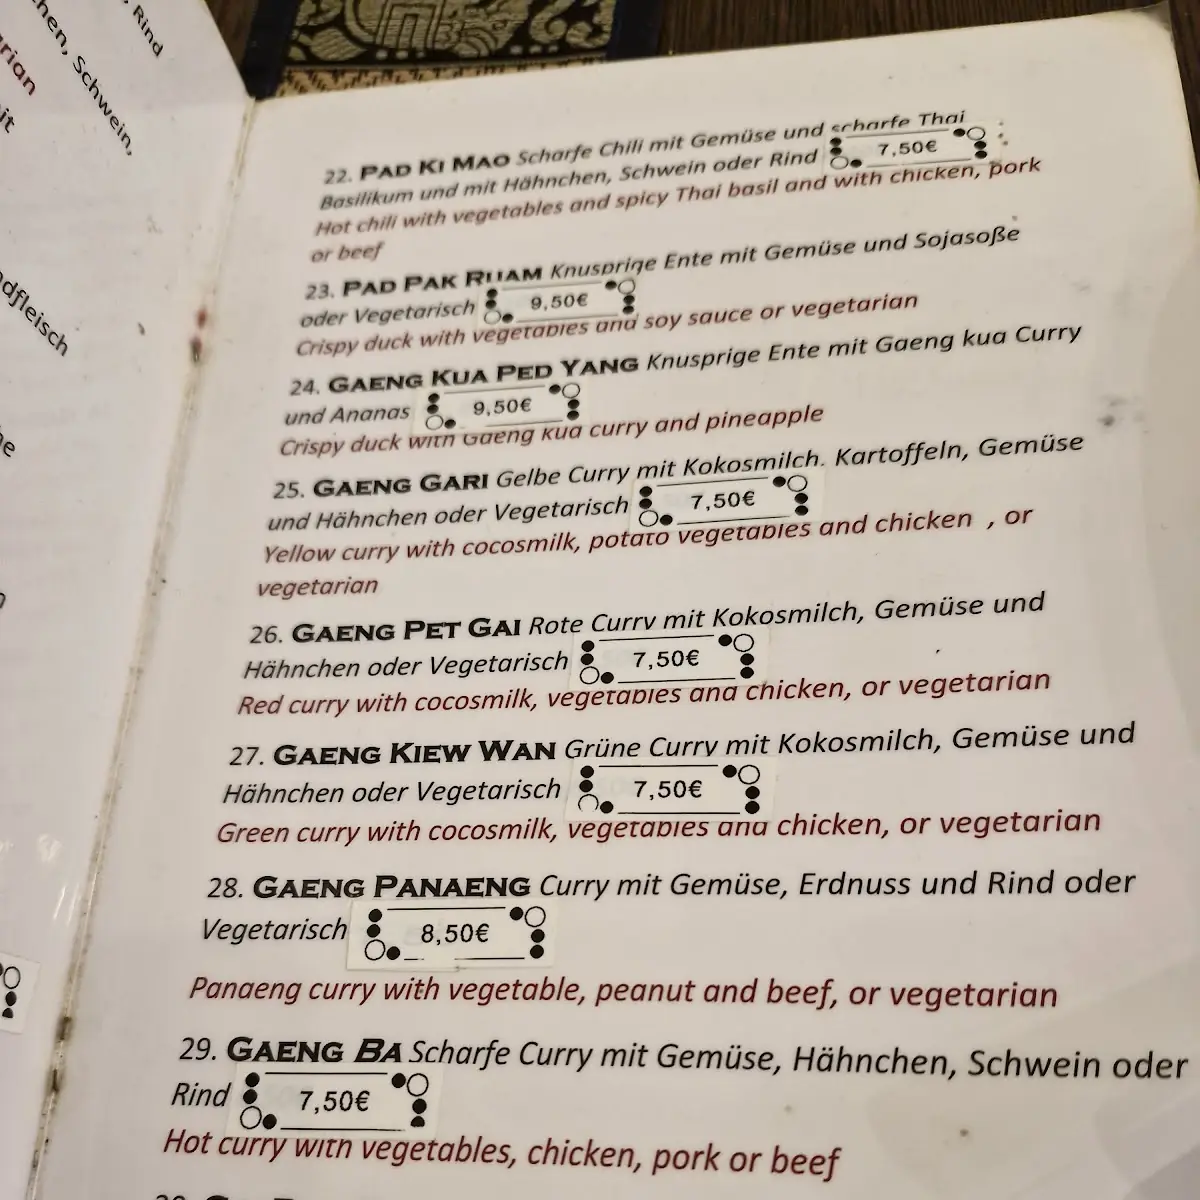 , Rind
hen, Schwein,
rian
it
dfleisch
22. PAD KI MAO Scharfe Chili mit Gemüse und scharfe Thai
Basilikum und mit Hähnchen, Schwein oder Rind 7,50€
Hot chili with vegetables and spicy Thai basil and with chicken, pork
or beef
23. PAD PAK RUAM Knusprige Ente mit Gemüse und Sojasoße
oder Vegetarisch 9,50€
Crispy duck with vegetables and soy sauce or vegetarian
24. GAENG KUA PED YANG Knusprige Ente mit Gaeng kua Curry
und Ananas 9,50€
Crispy duck with Gaeng kua curry and pineapple
25. GAENG GARI Gelbe Curry mit Kokosmilch. Kartoffeln, Gemüse
und Hähnchen oder Vegetarisch 7,50€
Yellow curry with cocosmilk, potato vegetables and chicken , or
vegetarian
26. GAENG PET GAI Rote Curry mit Kokosmilch, Gemüse und
Hähnchen oder Vegetarisch 7,50€
Red curry with cocosmilk, vegetables and chicken, or vegetarian
27. GAENG KIEW WAN Grüne Curry mit Kokosmilch, Gemüse und
Hähnchen oder Vegetarisch 7,50€
Green curry with cocosmilk, vegetables and chicken, or vegetarian
28. GAENG PANAENG Curry mit Gemüse, Erdnuss und Rind oder
Vegetarisch 8,50€
Panaeng curry with vegetable, peanut and beef, or vegetarian
29. GAENG BA Scharfe Curry mit Gemüse, Hähnchen, Schwein oder
Rind 7,50€
Hot curry with vegetables, chicken, pork or beef